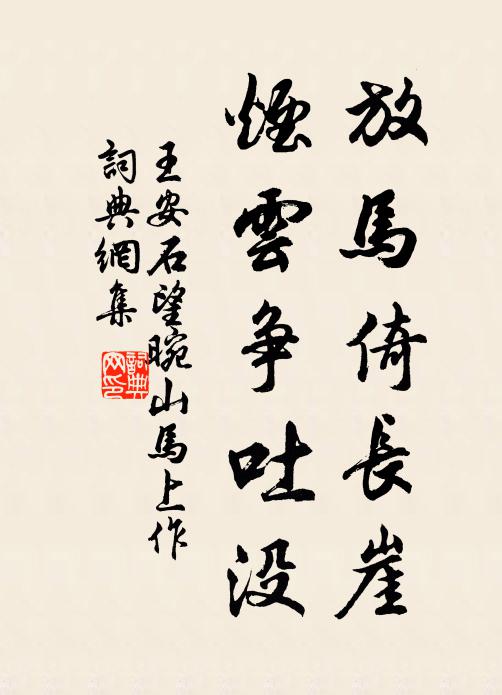 放馬倚長崖
煙雲爭吐没
王安石望晥山馬上作
詞典網集
詞典网印